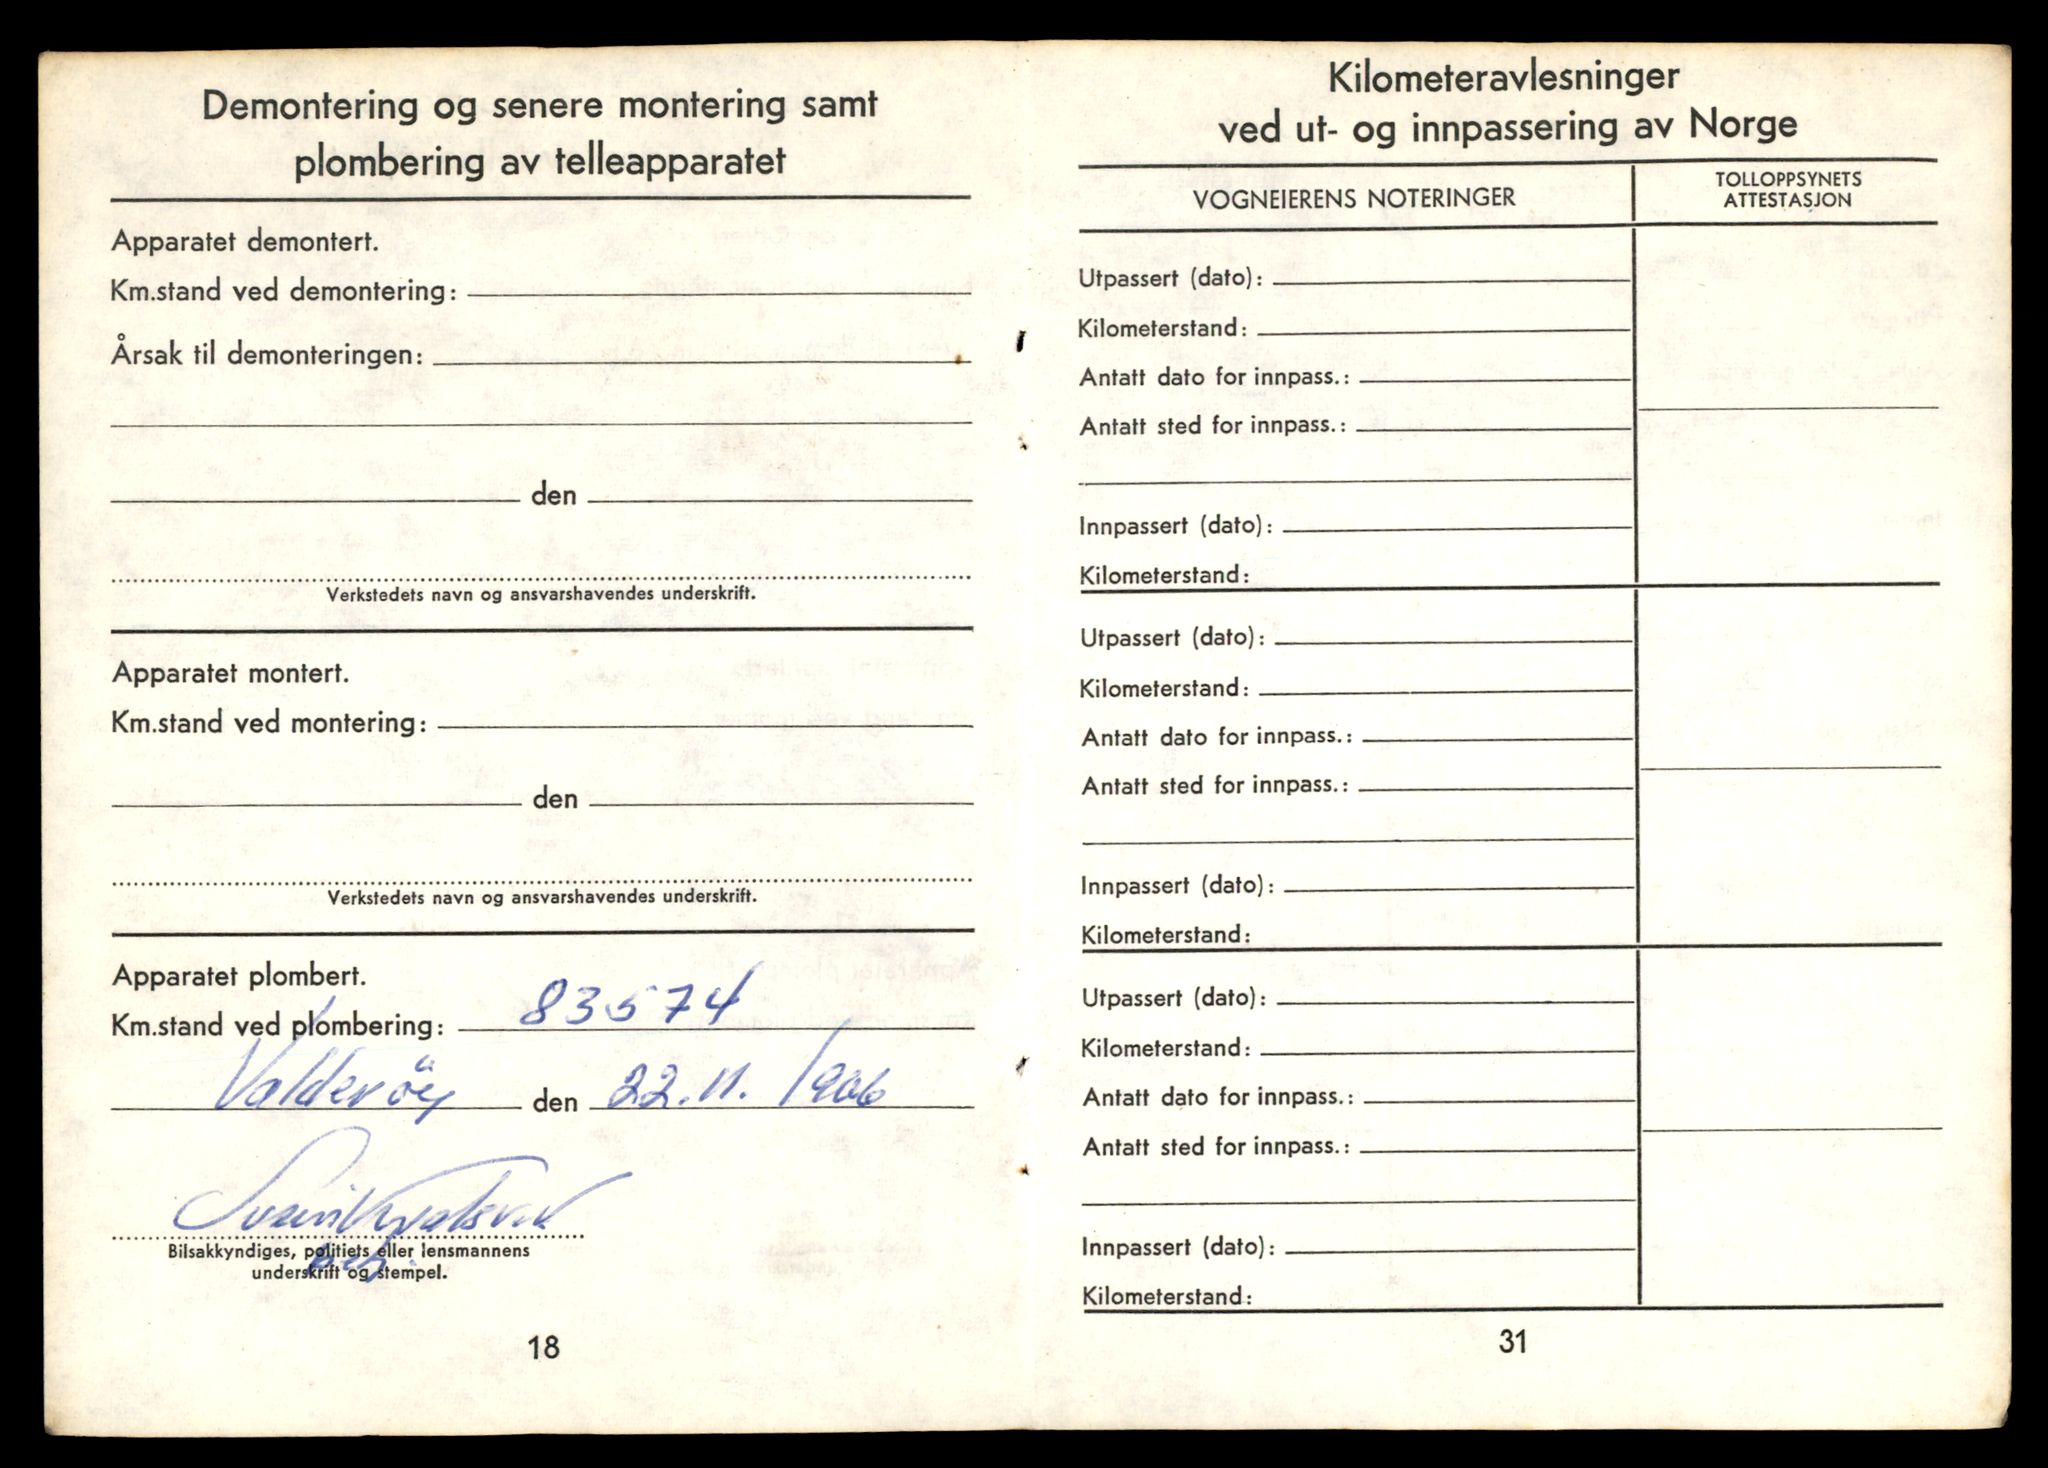 Demontering og senere montering samt
plombering av telleapparatet
Apparatet demontert.
Km.stand ved demontering:
Årsak til demonteringen:
den
Verkstedets navn og ansvarshavendes underskrift.
Apparatet montert.
Km.stand ved montering:
den
Verkstedets navn og ansvarshavendes underskrift.
Apparatet plombert.
Km.stand ved plombering: 83574
Valderöy den 22.11.
Bilsakkyndiges, politiets eller lensmannens
underskrift og stempel.
18
Kilometeravlesninger
ved ut- og innpassering av Norge
VOGNEIERENS NOTERINGER
TOLLOPPSYNETS
ATTESTASJON
Utpassert (dato):
Kilometerstand:
Antatt dato for innpass.:
Antatt sted for innpass.:
Innpassert (dato):
Kilometerstand:
Utpassert (dato):
Kilometerstand:
Antatt dato for innpass.:
Antatt sted for innpass.:
Innpassert (dato):
Kilometerstand:
Utpassert (dato):
Kilometerstand:
Antatt dato for innpass.:
Antatt sted for innpass.:
Innpassert (dato):
Kilometerstand:
31